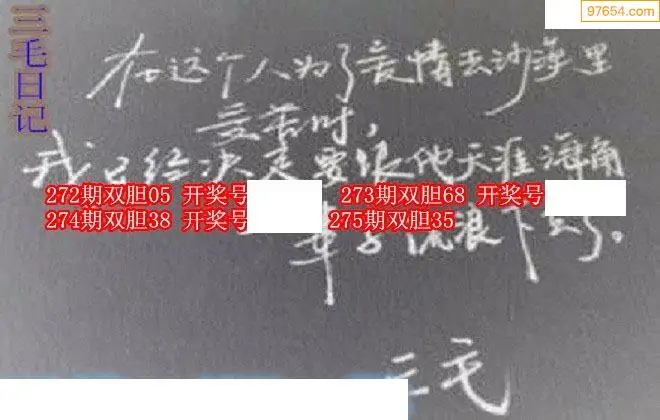 97654.com
三毛日记
在这个人为了爱情去沙漠里
受苦时，
我已经决定要跟他天涯海角
272期双胆05 开奖号 273期双胆68 开奖号
274期双胆38 开奖号 275期双胆35
辈子流浪下去了。
三毛